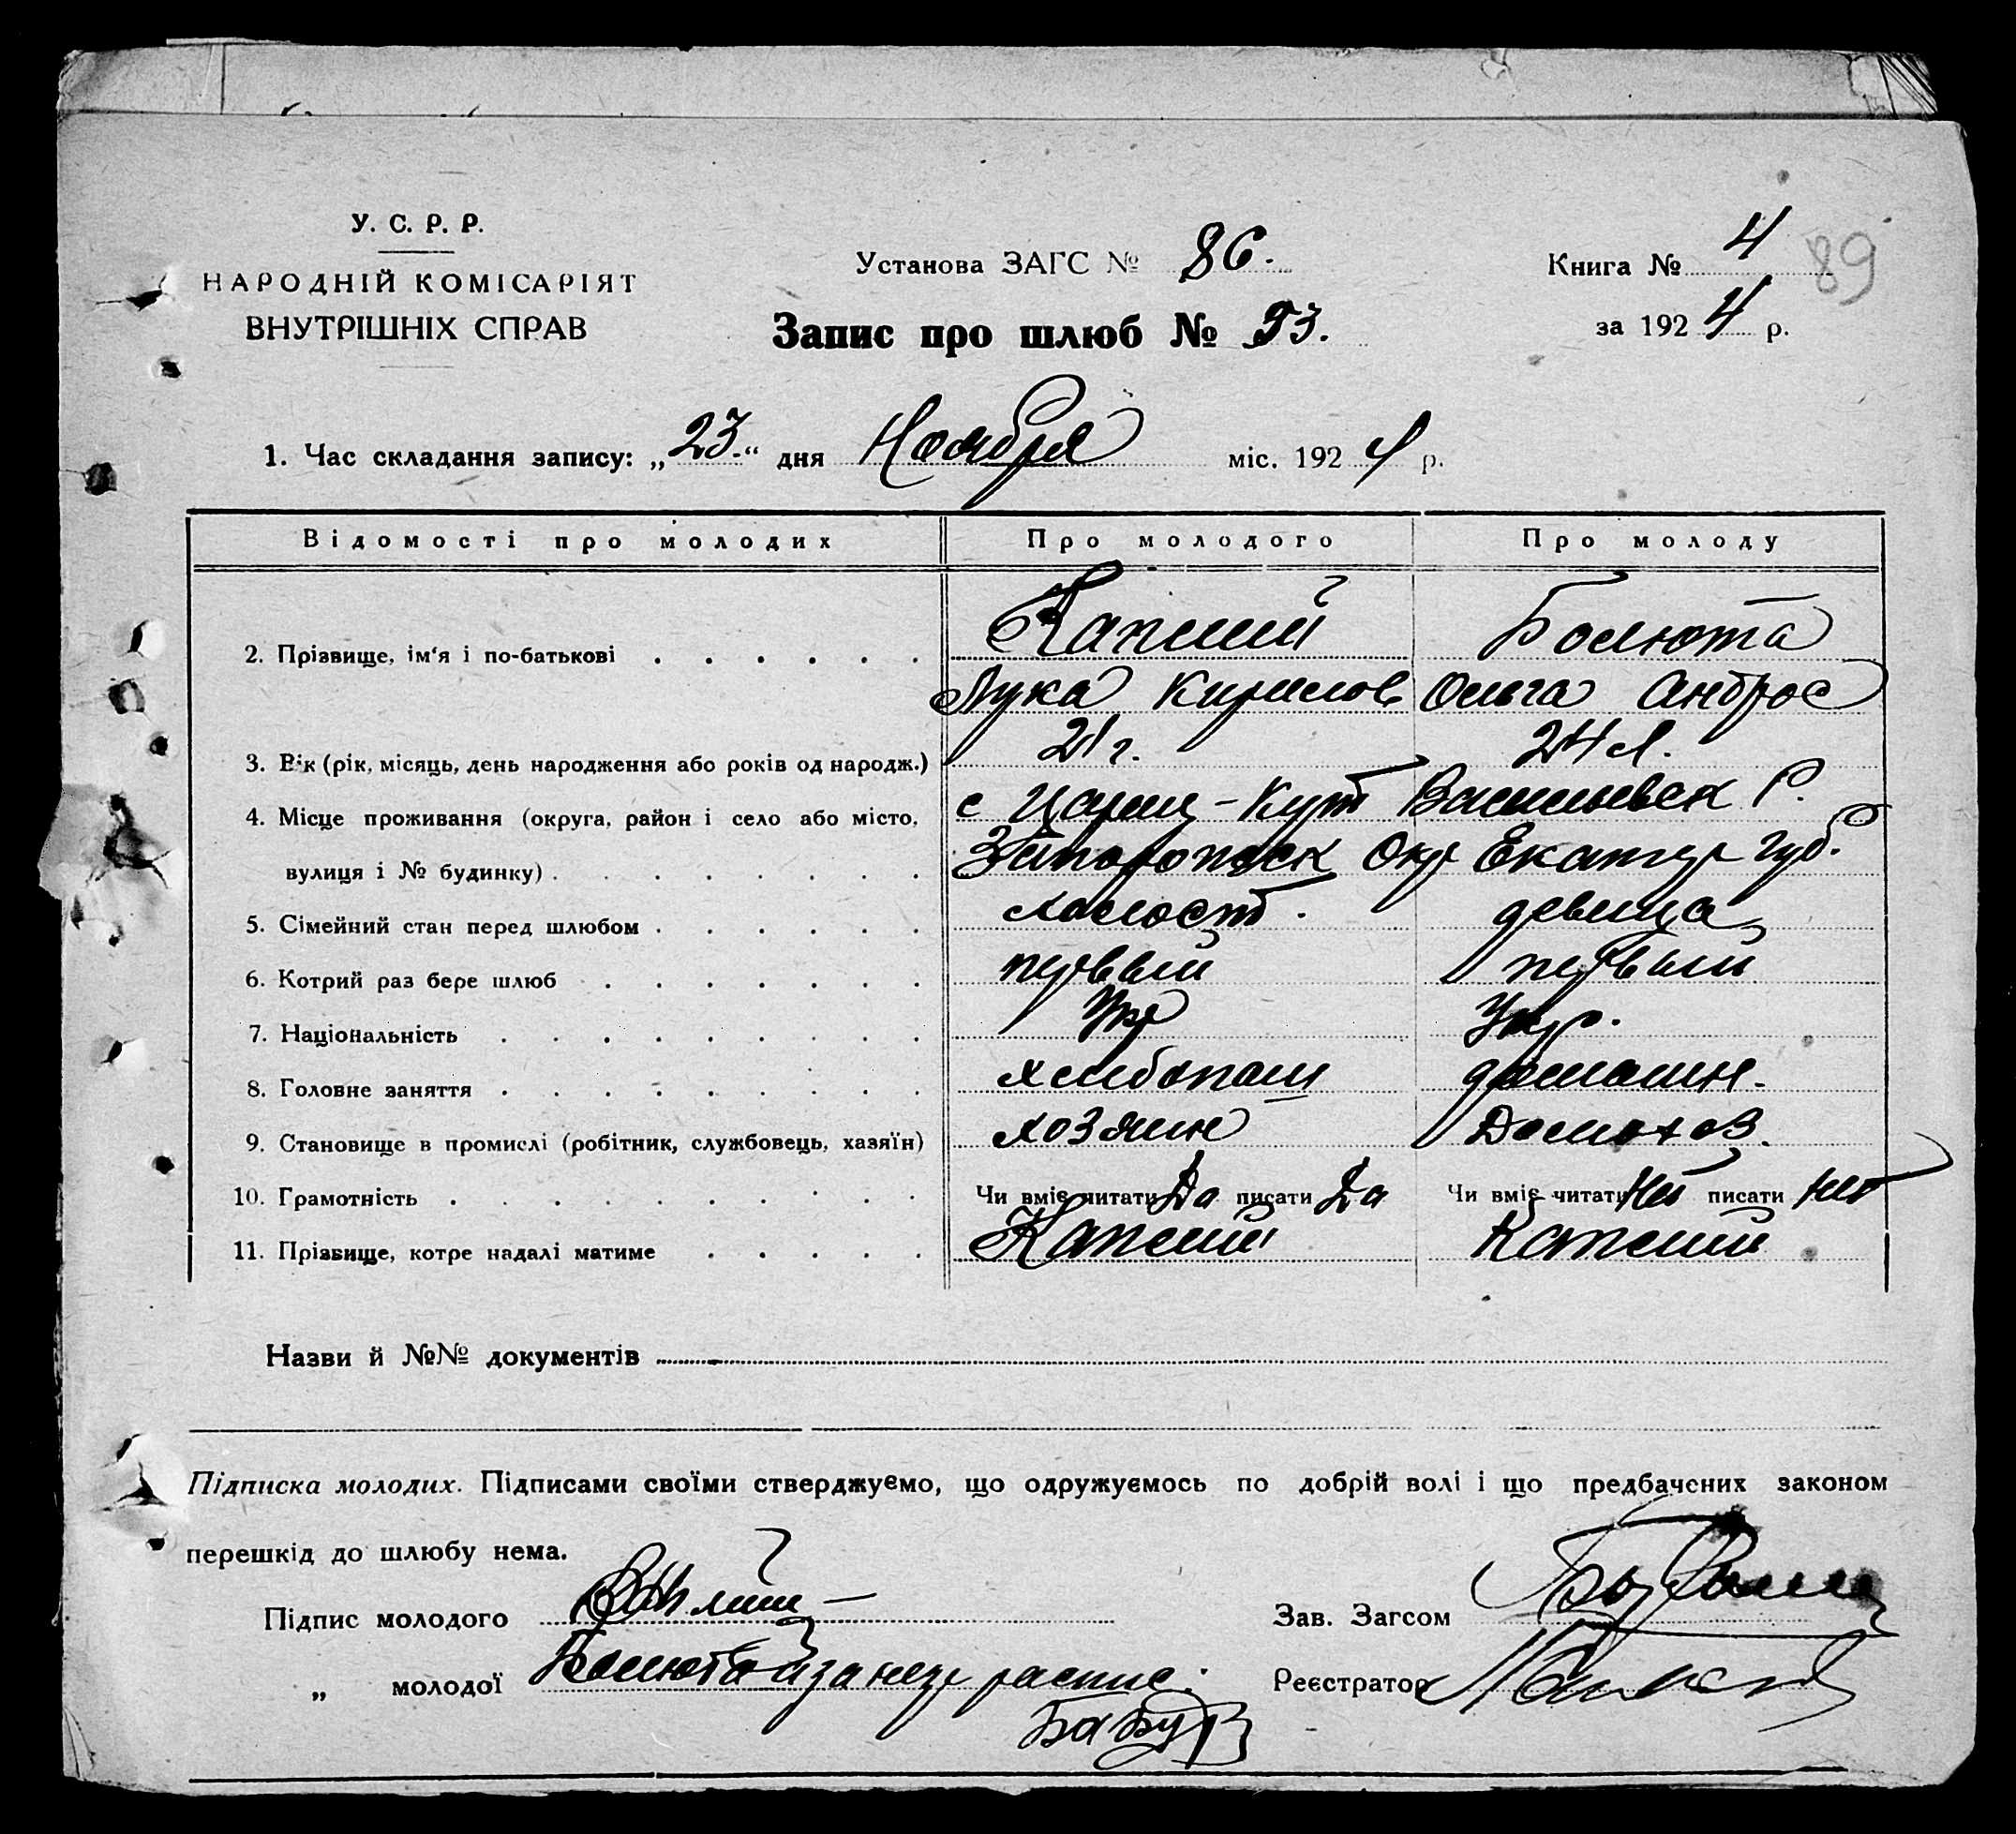 У. С. Р. Р.
НАРОДНІЙ КОМІСАРІЯТ
ВНУТРІШНІХ СПРАВ
Установа ЗАГС № 86.
Запис про шлюб № 53.
Книга № 4
89
за 1924 р.
1. Час складання запису: „23.“ дня Ноября міс. 1924 р.
Відомості про молодих Про молодого Про молоду
2. Прізвище, ім'я і по-батькові Каплий Болюта
Лука Кирилов Ольга Андрос
3. Вік (рік, місяць, день народження або років од народж.) 21 г. 24 л.
4. Місце проживання (округа, район і село або місто, с Цариц-Кут Васильевск Р.
вулиця і № будинку) Запорожск Окр Екатер губ.
5. Сімейний стан перед шлюбом холост. девица
6. Котрий раз бере шлюб первый первый
7. Національність Укр Укр.
8. Головне заняття хлебопаш домашн.
9. Становище в промислі (робітник, службовець, хазяїн) хозяин Домохоз.
10. Грамотність Чи вміє читати Да писати Да Чи вміє читати Нет писати нет
11. Прізвище, котре надалі матиме Каплий Каплий
Назви й №№ документів
Підписка молодих. Підписами своїми стверджуємо, що одружуємось по добрій волі і що предбачених законом
перешкід до шлюбу нема.
Підпис молодого
Зав. Загсом
„ молодої Болюта а за негр распис.
Реєстратор